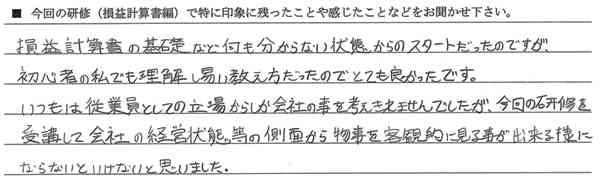 ■ 今回の研修(損益計算書編)で特に印象に残ったことや感じたことなどをお聞かせ下さい。
損益計算書の基礎など何も分からない状態からのスタートだったのですが、
初心者の私でも理解し易い教え方だったのでとても良かったです。
いつもは従業員としての立場からしか会社の事を考えきれませんでしたが、今回の研修を
受講して会社の経営状態等の側面から物事を客観的に見る事が出来る様に
ならないといけないと思いました。